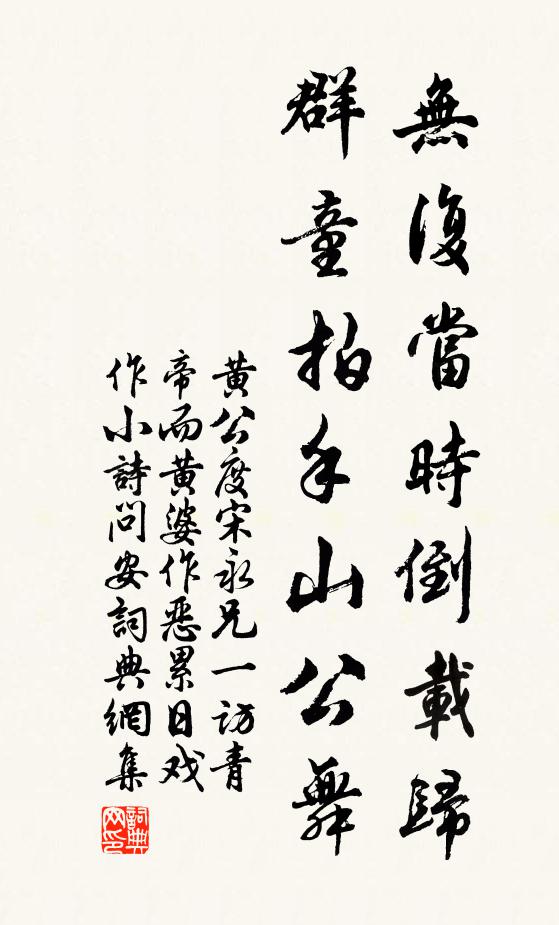 無復當時倒載歸
群童拍手山公舞
黄公度宋永兄一訪青
帝而黄婆作恶累日戏
作小詩問安詞典網集
詞典网印